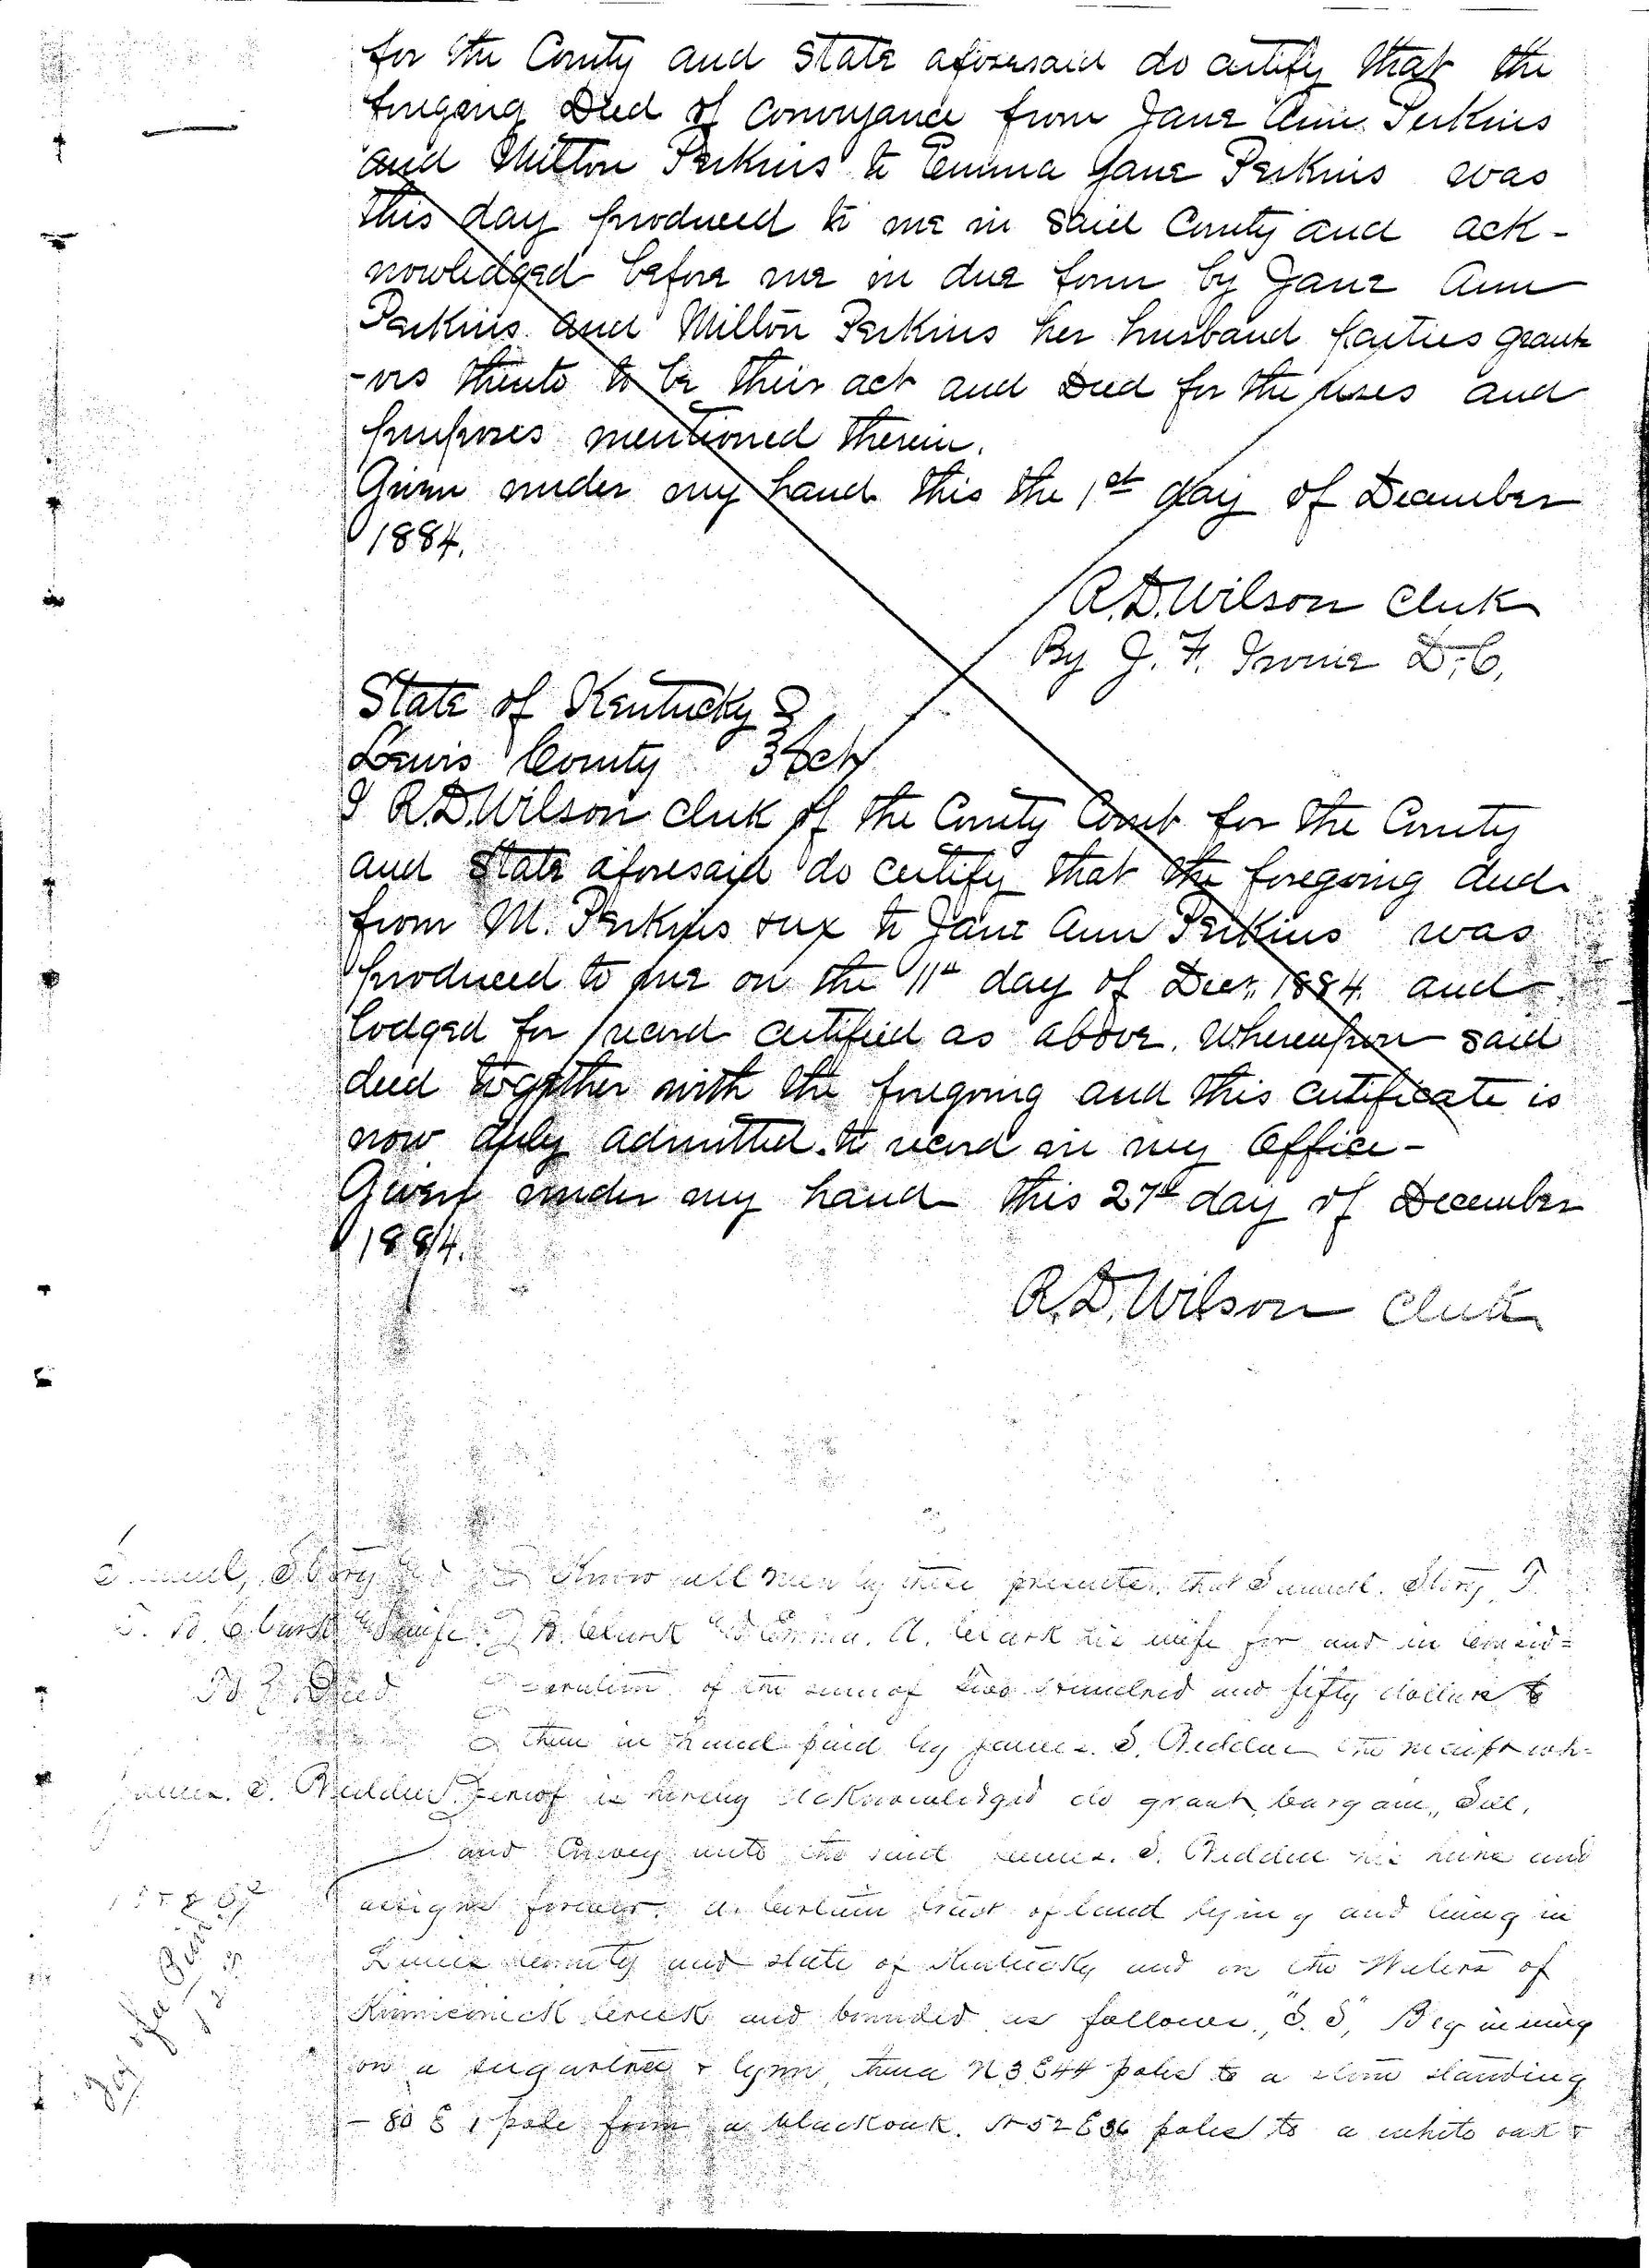 for the County and State aforesaid do certify that the
foregoing Deed of Conveyance from Jane Ann Perkins
and Milton Perkins to Emma Jane Perkins was
this day produced to me in said County and ack-
nowledged before me in due form by Jane Ann
Perkins and Milton Perkins her husband parties grant
-ors thereto to be their act and Deed for the uses and
purposes mentioned therein.
Given under my hand this the 1st day of December
1884.
R.D. Wilson Clerk
By J. F. D.C.
State of Kentucky
Lewis County } Sct
I R.D. Wilson clerk of the County Court for the County
and State aforesaid do certify that the foregoing deed
from M. Perkins & ux to Jane Ann Perkins was
produced to me on the 11th day of Decr. 1884. and
lodged for record certified as above. Whereupon said
deed together with the foregoing and this certificate is
now duly admitted to record in my Office-
Given under my hand this 27th day of December
1884.
R.D. Wilson Clerk
Samuel, Story
Know all men by these presents, that Samuel. Story, T.
T. B. Clark & Wife
B. Clark & Emma. A. Clark his wife for and in Consid=
To } Deed
-eration of the sum of two hundred and fifty dollars to
them in hand paid by James. S. the receipt wh-
James. S.
ereof is hereby acknowledged do grant, bargain, Sell,
and Convey unto the said James. S. his heirs and
assigns forever. a certain tract of land lying and being in
Lewis County and state of Kentucky and on the Waters of
Kinniconick Creek and bounded as follows, "S. S", Begining
on a sugartree & lynn, thence N 3 E 44 poles to a stone standing
- 80 E 1 pole from a blackoak. N 52 E 36 poles to a white oak &